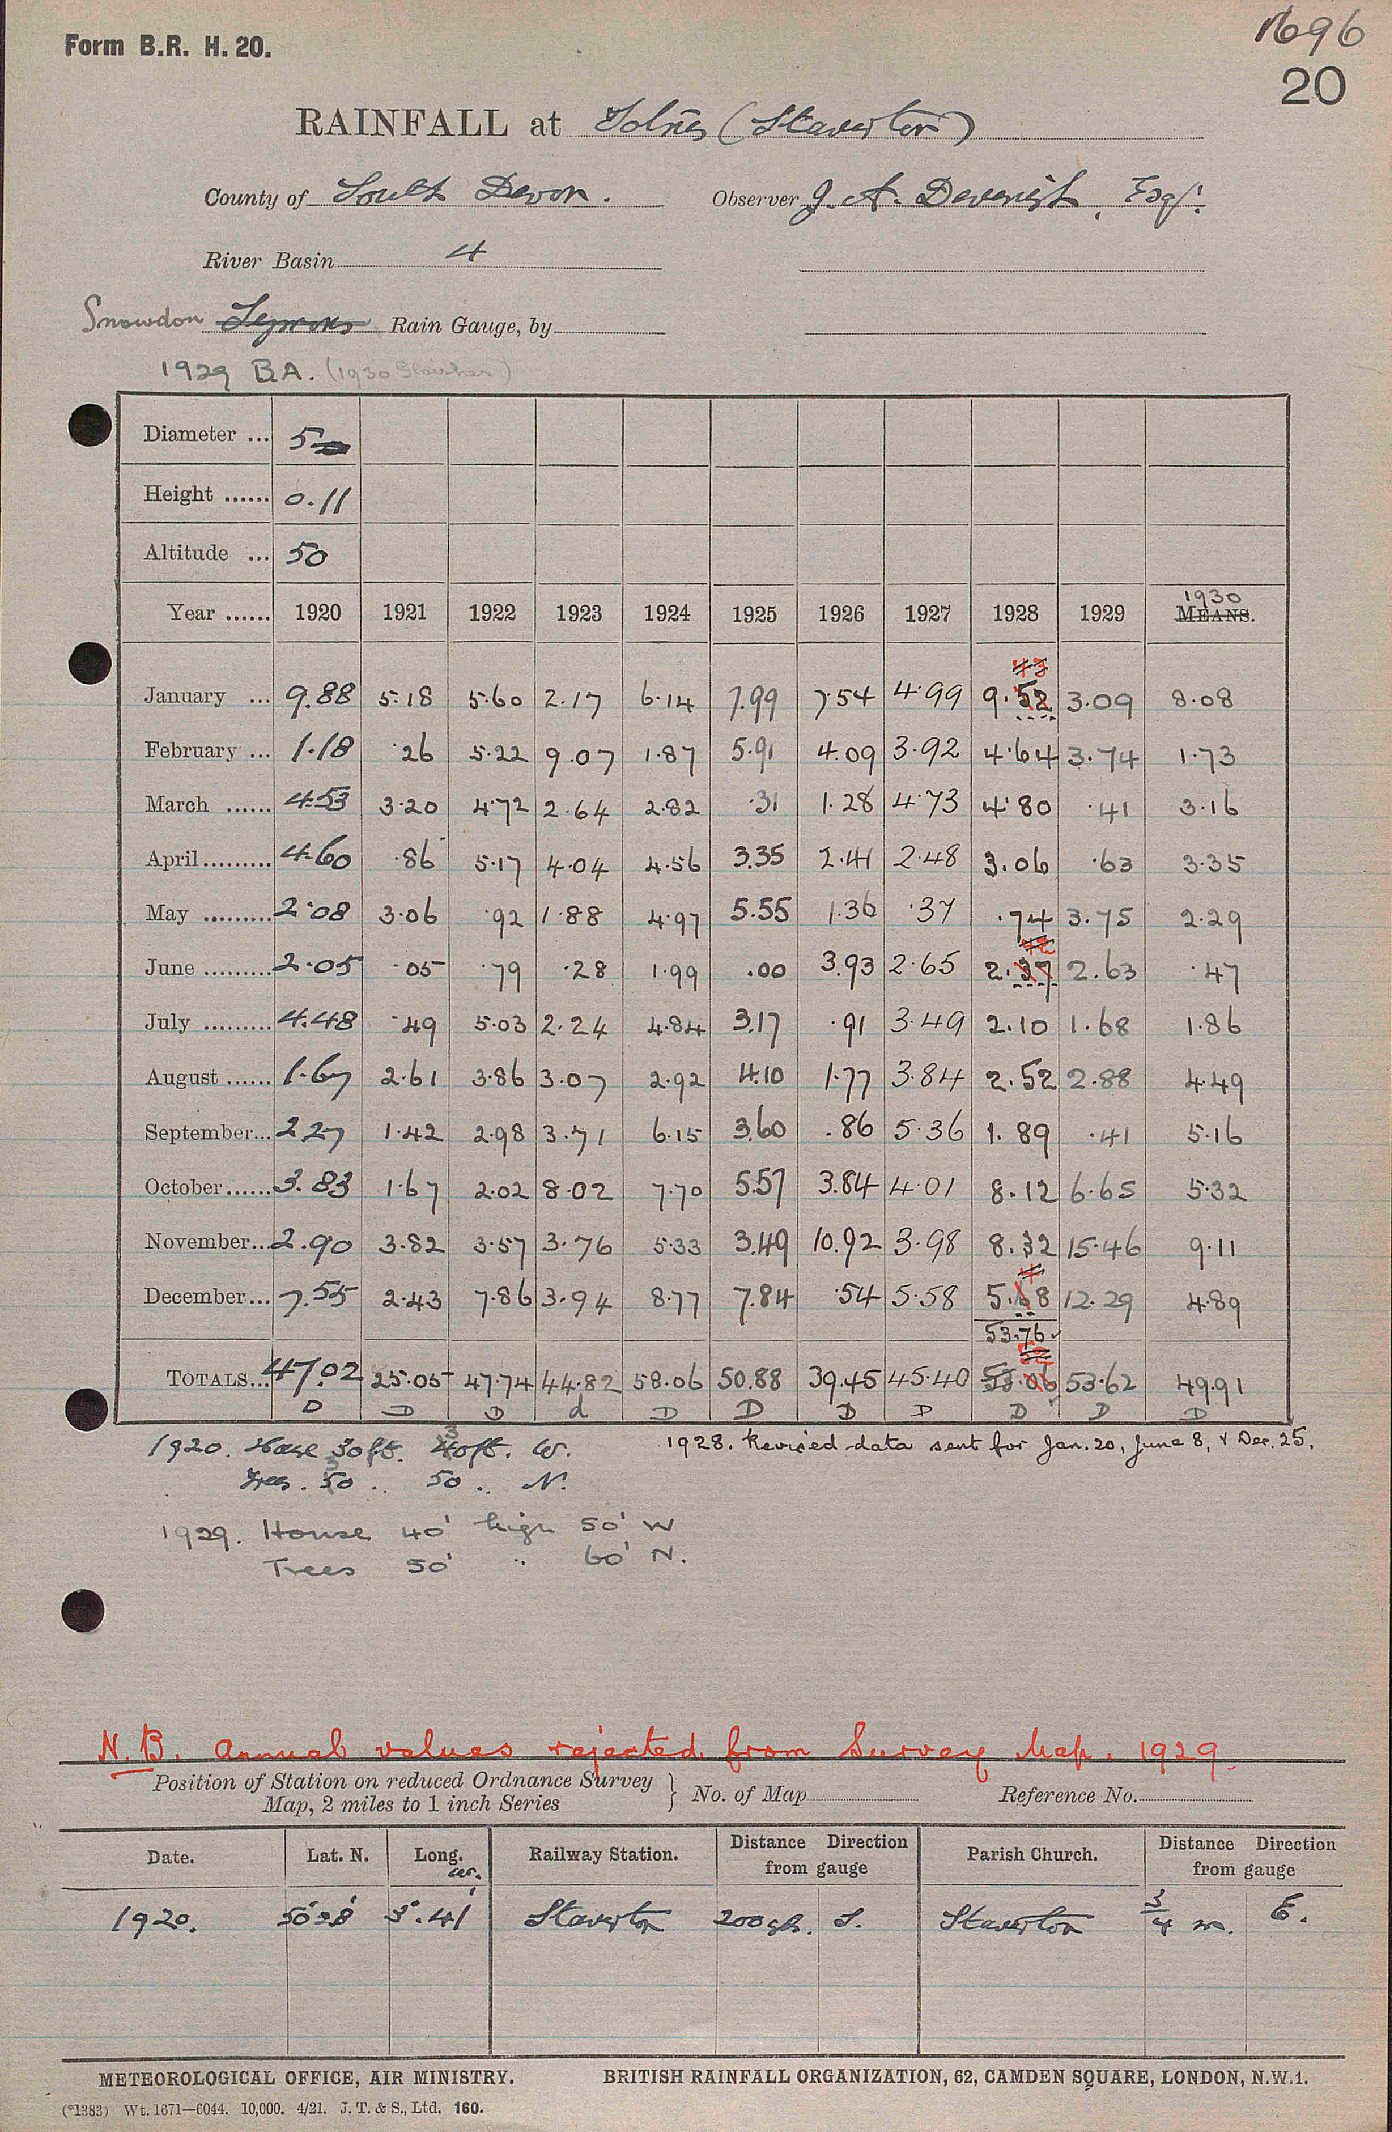 1696
Form B.R. H. 20.
20
RAINFALL at Totnes (Staverton)
County of South Devon. Observer J. A. Devenish, Esqr.
River Basin 4
Snowdon Symons Rain Gauge, by
1929 B.A. (1930 )
Diameter ... 5
Height ...... 0.11
Altitude ... 50
1930
Year ...... 1920 1921 1922 1923 1924 1925 1926 1927 1928 1929 MEANS.
43
January ... 9.88 5.18 5.60 2.17 6.14 7.99 7.54 4.99 9.52 3.09 8.08
February ... 1.18 .26 5.22 9.07 1.87 5.91 4.09 3.92 4.64 3.74 1.73
March ...... 4.53 3.20 4.72 2.64 2.82 .31 1.28 4.73 4.80 .41 3.16
April ......... 4.60 .86 5.17 4.04 4.56 3.35 2.41 2.48 3.06 .63 3.35
May ......... 2.08 3.06 .92 1.88 4.97 5.55 1.36 .37 .74 3.75 2.29
June ......... 2.05 .05 .79 .28 1.99 .00 3.93 2.65 2.37 2.63 .47
July ......... 4.48 .49 5.03 2.24 4.84 3.17 .91 3.49 2.10 1.68 1.86
August ...... 1.67 2.61 3.86 3.07 2.92 4.10 1.77 3.84 2.52 2.88 4.49
September... 2.27 1.42 2.98 3.71 6.15 3.60 .86 5.36 1.89 .41 5.16
October...... 3.83 1.67 2.02 8.02 7.70 5.57 3.84 4.01 8.12 6.65 5.32
November... 2.90 3.82 3.57 3.76 5.33 3.49 10.92 3.98 8.32 15.46 9.11
December... 7.55 2.43 7.86 3.94 8.77 7.84 .54 5.58 5.68 12.29 4.89
53.76
TOTALS... 47.02 25.05 47.74 44.82 58.06 50.88 39.45 45.40 53.06 53.62 49.91
D D D d D D D D D D D
1920. House 30ft. 40ft. W. 1928. Revised data sent for Jan. 20, June 8, & Dec. 25.
Trees. 50 .. 50 .. N.
1929. House 40' high 50' W
Trees 50' " 60' N.
N.B. Annual values rejected from Survey Map. 1929.
Position of Station on reduced Ordnance Survey
Map, 2 miles to 1 inch Series } No. of Map Reference No.
Date. Lat. N. Long. W. Railway Station. Distance Direction from gauge Parish Church. Distance Direction from gauge
1920. 50°28' 3°.41' Staverton 200yds. S. Staverton 3/4 m. E.
METEOROLOGICAL OFFICE, AIR MINISTRY. BRITISH RAINFALL ORGANIZATION, 62, CAMDEN SQUARE, LONDON, N.W.1.
(*1383) Wt. 1671—6044. 10,000. 4/21. J. T. & S., Ltd. 160.